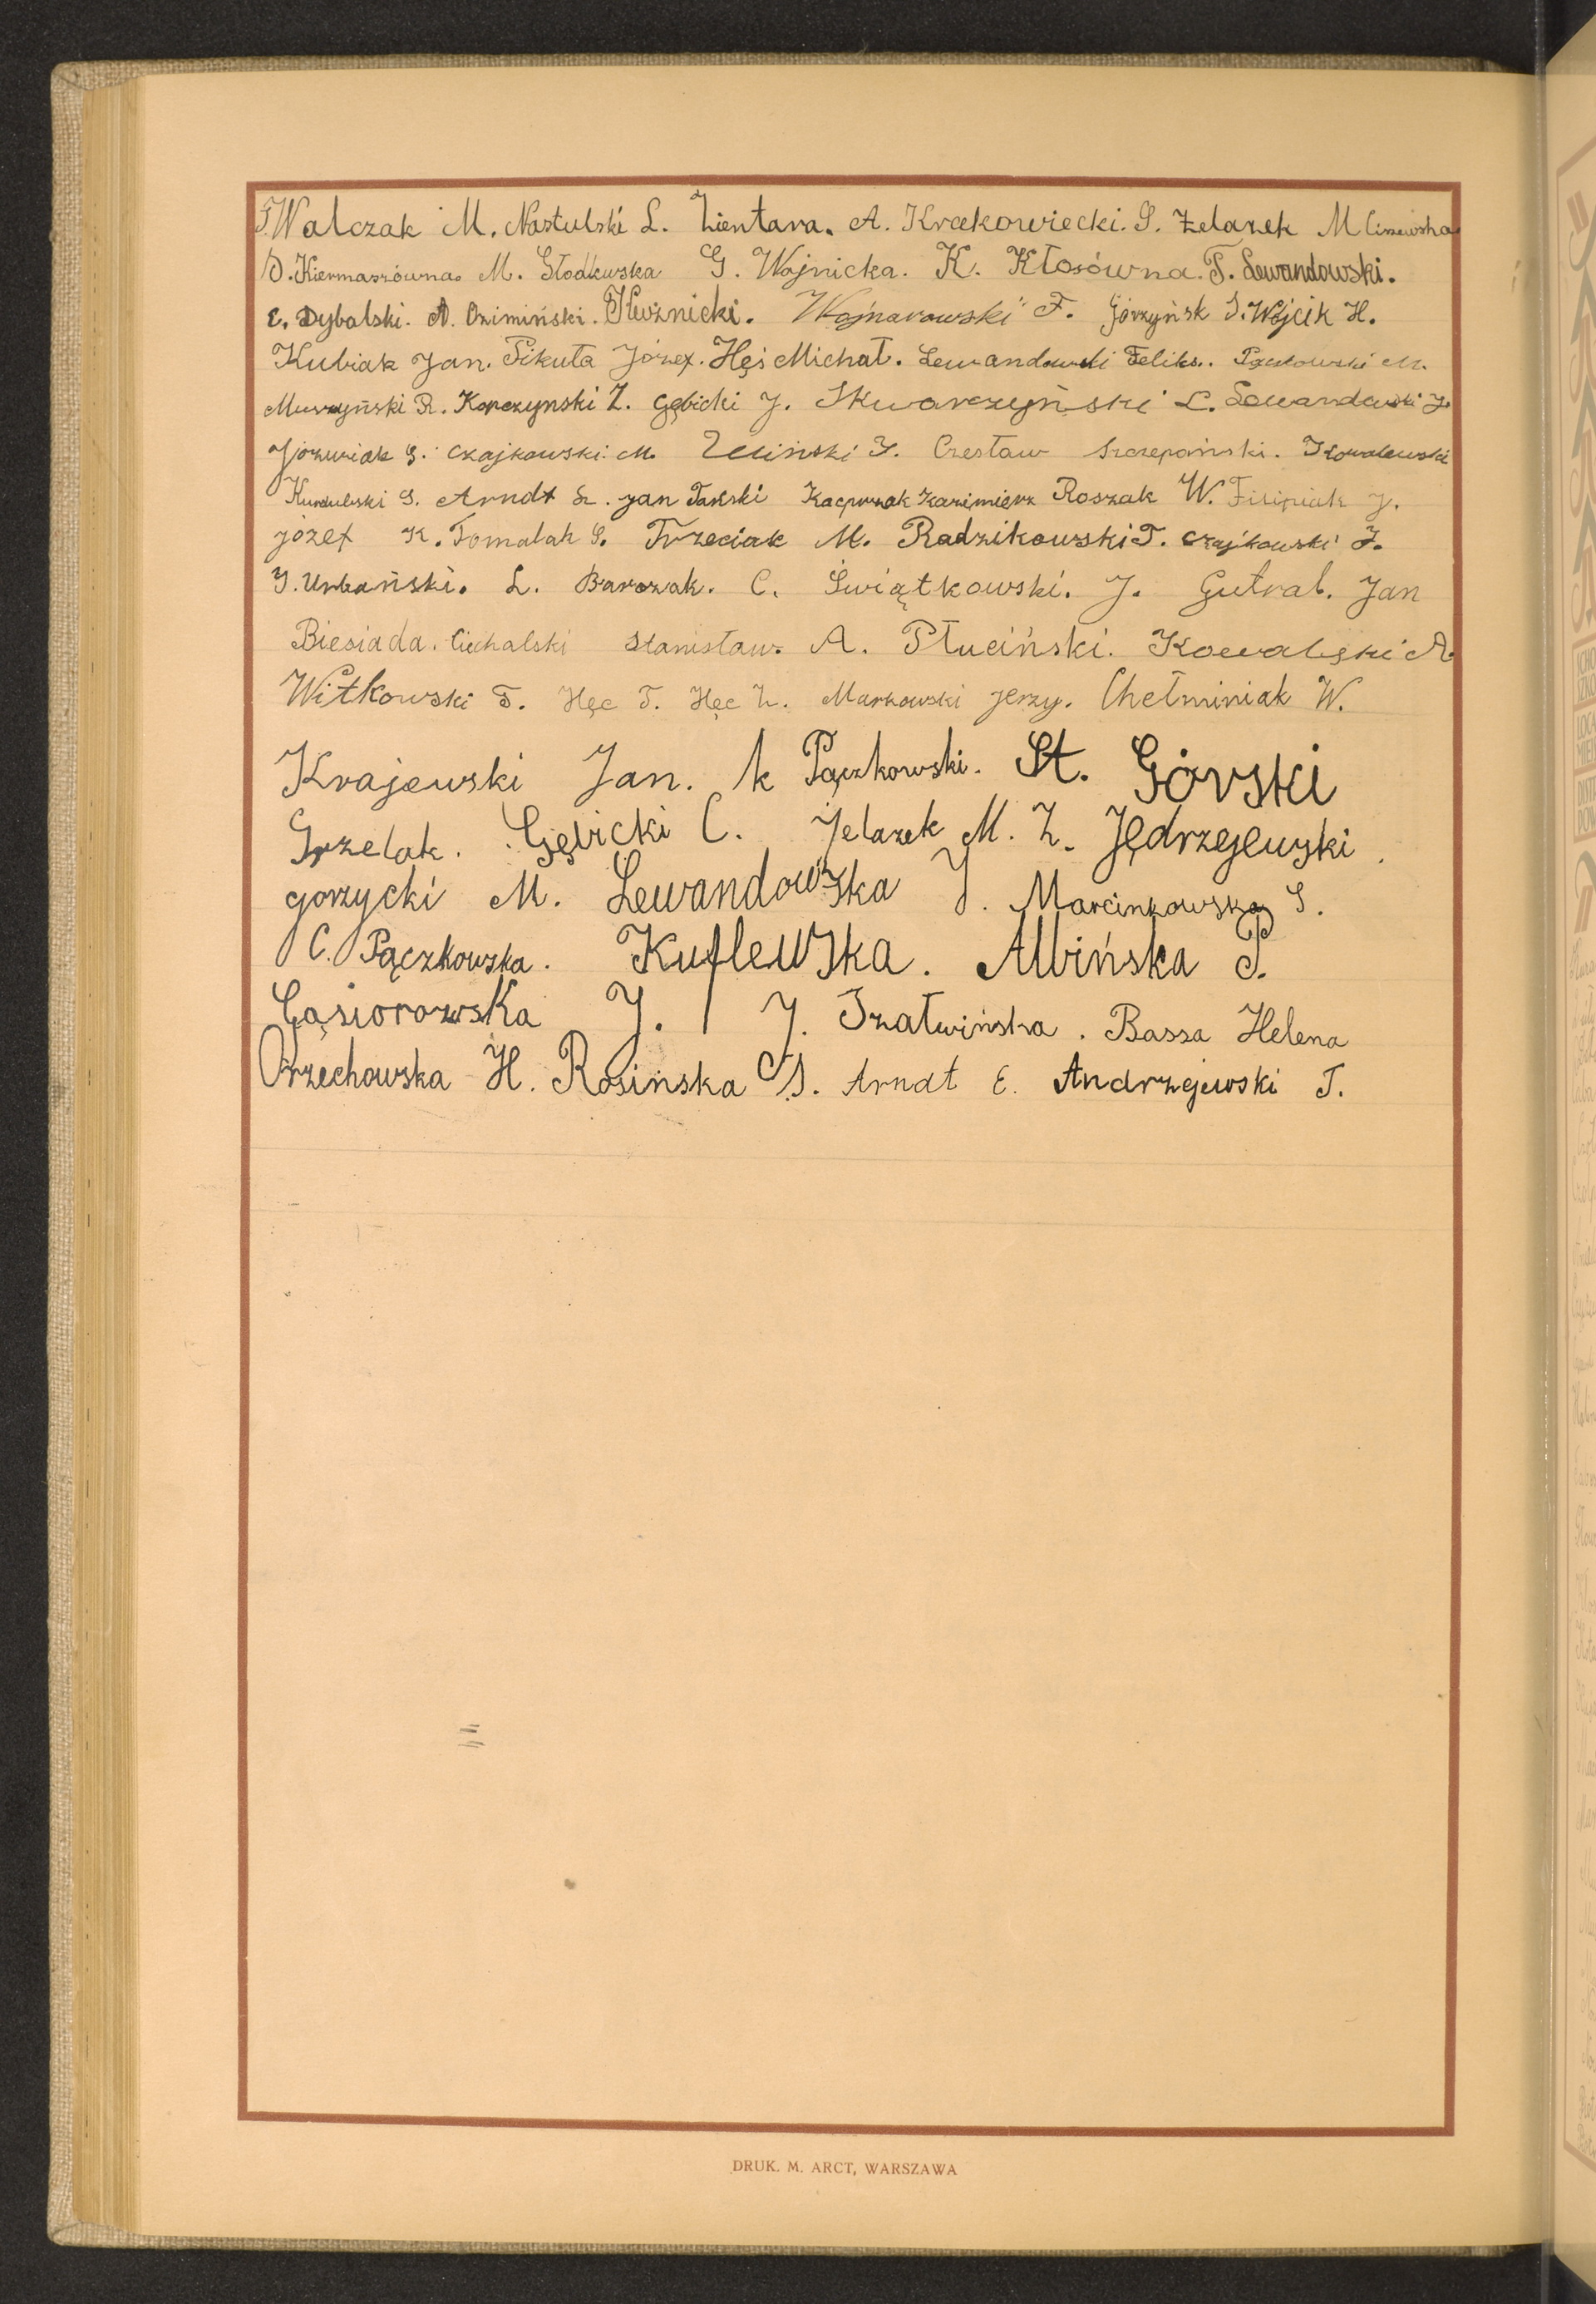 J. Walczak M. Nastulski L. Zientara. A. Krakowiecki. S. Żelazek M Ciszewska
D. Kiermaszówna. M. Głodkowska G. Wojnicka. K. Kłosówna. T. Lewandowski.
E. Dybalski. A. Ozimiński. Kuźnicki. Wojnarowski F. Górzyńsk S. Wójcik H.
Kubiak Jan. Pikuła Józef. Hęś Michał. Lewandowski Feliks. M.
Murzyński R. Korczynski Z. Gębicki J. Skwarczyński L. Lewandowski J.
Józwiak S. Czajkowski M. Zeliński J. Czesław Szczepański. Kowalewski
S. Arndt L. Jan Tarski Kacprzak Kazimierz Roszak W. Filipiak J.
Józef K. Tomalak S. Trzeciak M. Radzikowski T. Czajkowski J.
J. Urbański. L. Barczak. C. Świątkowski. J. Gutral. Jan
Biesiada. Cichalski Stanisław. A. Płuciński. Kowalski A.
Witkowski T. Hęc T. Hęc Z. Markowski Jerzy. Chełminiak W.
Krajewski Jan. K Pączkowski. St. Górski
Grzelak. Gębicki C. Żelazek M. Z. Jędrzejewski.
Gorzycki M. Lewandowska J. Marcinkowska S.
C. Pączkowska. Kuflewska. Albińska P.
Gąsiorowska J. J. Szałwińska. Bassa Helena
Orzechowska H. Rosińska S. Arndt E. Andrzejewski T.
DRUK. M. ARCT, WARSZAWA